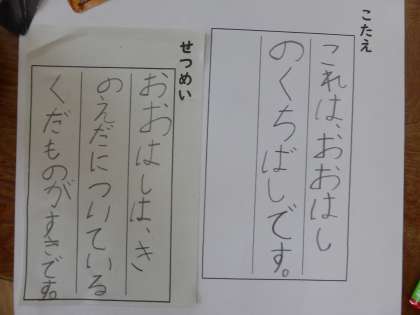 こたえ
これは、おおはし
のくちばしです。
せつめい
おおはしは、き
のえだについている
くだものがすきです。